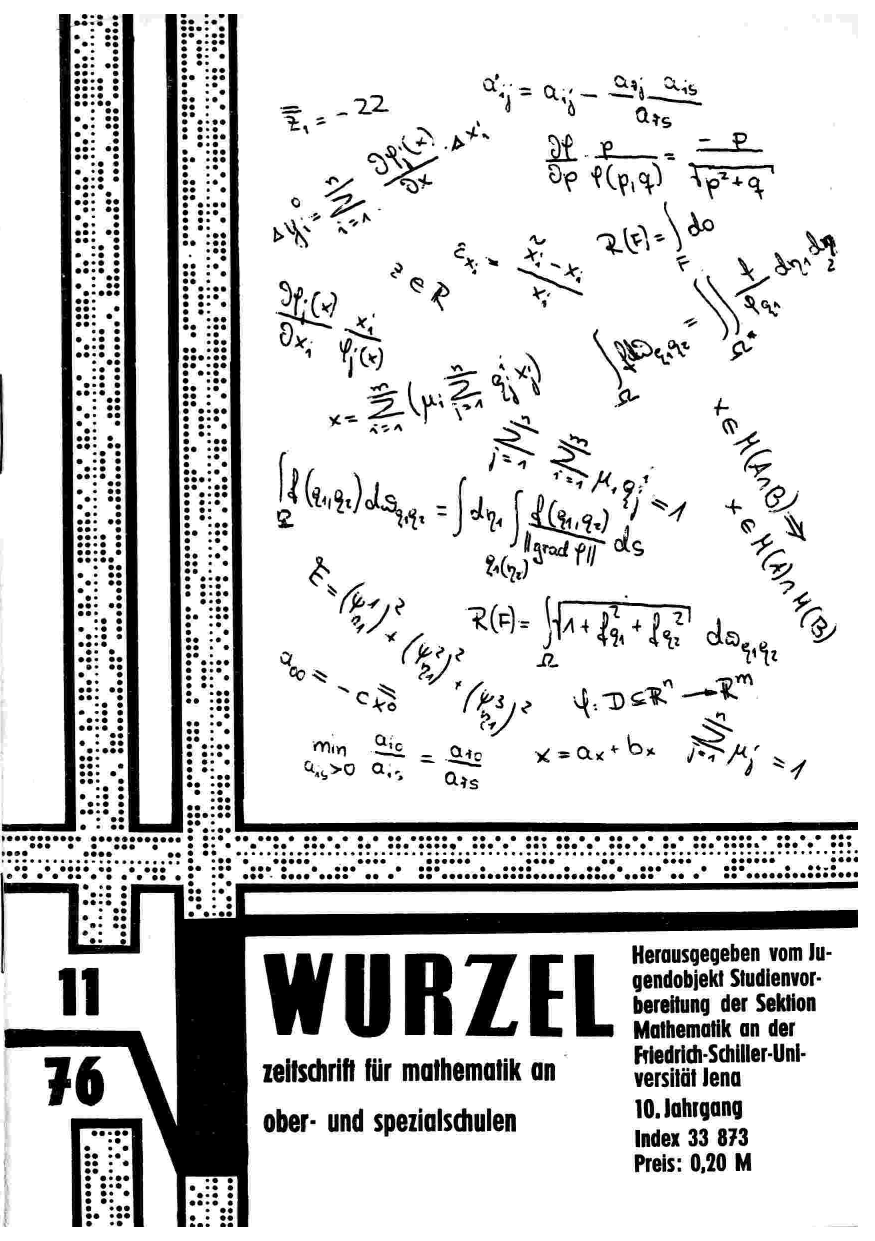 z̿₁ = -22
a'ᵢⱼ = aᵢⱼ - (aᵣⱼ aᵢₛ)/aᵣₛ
∂φ/∂p · p/φ(p,q) = -p/√(p²+q)
Δyᵢ⁰ = Σᵢ₌₁ⁿ ∂φⱼ(x)/∂x · Δxᵢ
R(F) = ∫_F do
z ∈ R
ε̂ₓᵢ = (x̃ᵢ - xᵢ)/xᵢ
∂φⱼ(x)/∂xᵢ xᵢ/φⱼ(x)
∫_Ω f dω̃_q₁q₂ = ∬_Ω* f/φ_q₁ dη₁ dη₂
x = Σᵢ₌₁ᵐ (μᵢ Σⱼ₌₁ⁿ qⱼⁱ xⱼⁱ)
Σⱼ₌₁ⁿ Σᵢ₌₁ᵐ μᵢ qⱼⁱ = 1
x ∈ H(A∩B) ⇒
x ∈ H(A) ∩ H(B)
∫_Ω f(q₁,q₂) dω̃_q₁q₂ = ∫ dη₁ ∫_q₁(η₂) f(q₁,q₂)/‖grad φ‖ ds
E = (ψ¹_η₁)² + (ψ²_η₁)² + (ψ³_η₁)²
R(F) = ∫_Ω √(1 + f²_q₁ + f²_q₂) dω̃_q₁q₂
a₀₀ = -c x̿₀
φ: D ⊆ ℝⁿ → ℝᵐ
min_{aᵢₛ>0} aᵢ₀/aᵢₛ = aᵣ₀/aᵣₛ
x = aₓ + bₓ
Σⱼ₌₁ⁿ μⱼ = 1
11
76
WURZEL
zeitschrift für mathematik an
ober- und spezialschulen
Herausgegeben vom Ju-
gendobjekt Studienvor-
bereitung der Sektion
Mathematik an der
Friedrich-Schiller-Uni-
versität Jena
10. Jahrgang
Index 33 873
Preis: 0,20 M